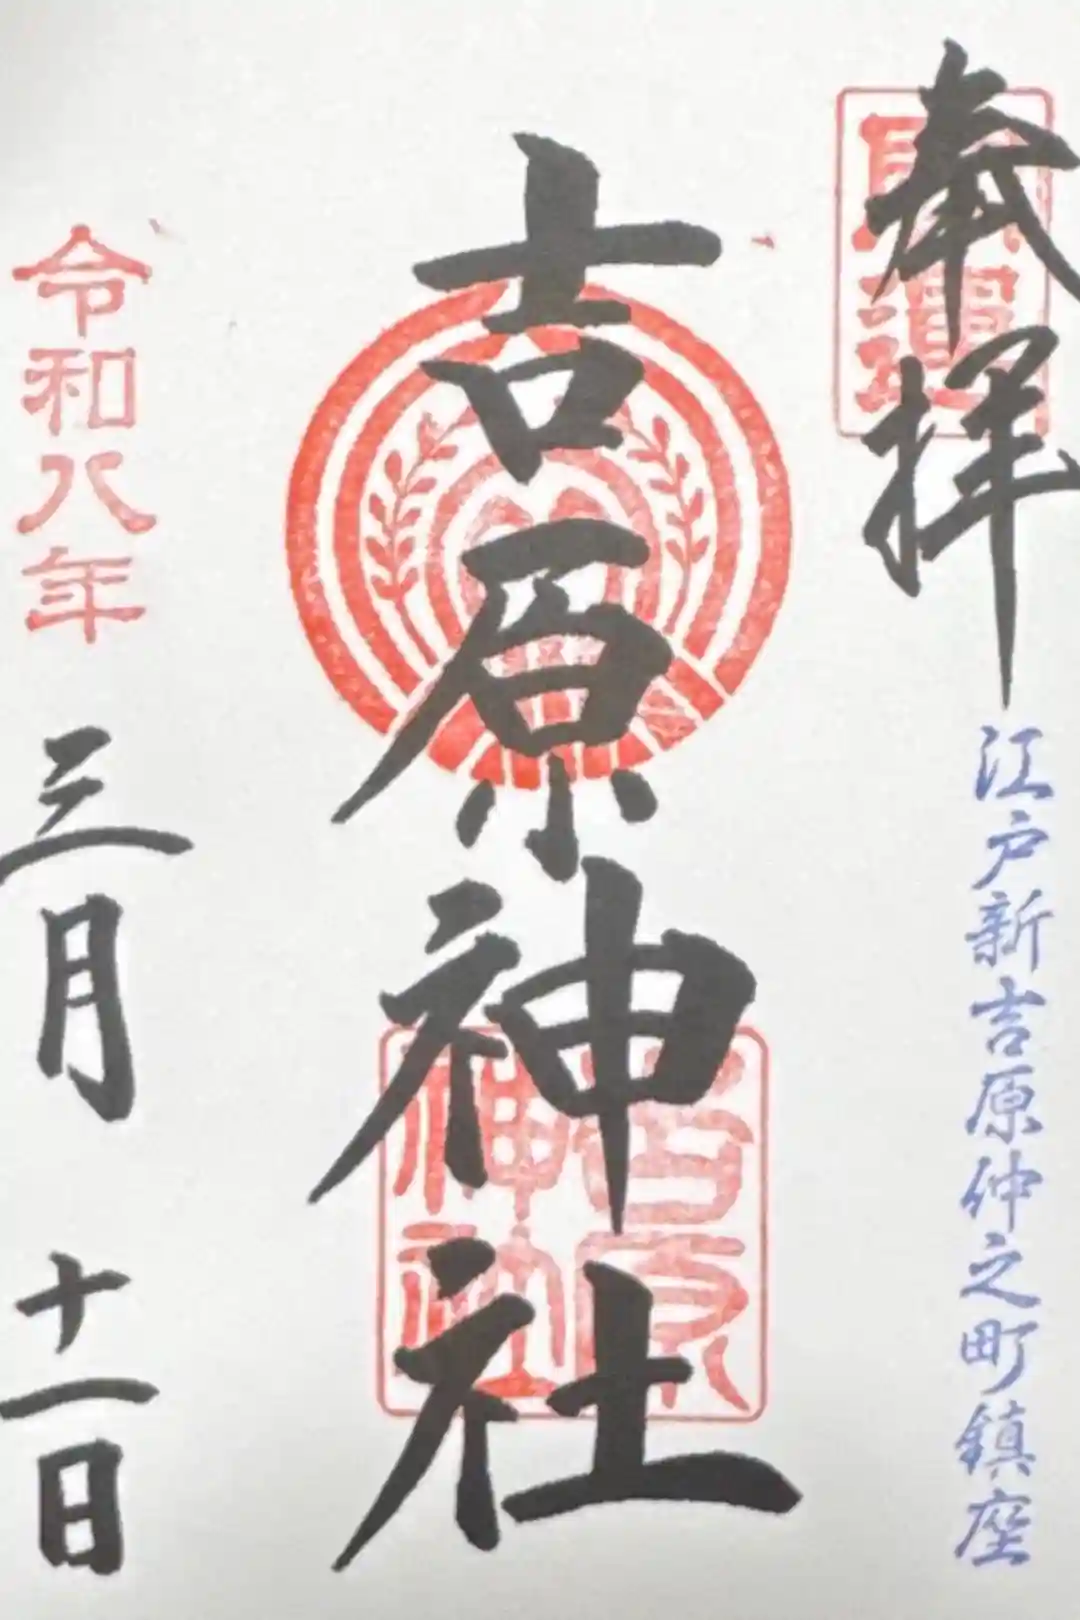 奉拝
開運
江戸新吉原仲之町鎮座
吉原神社
吉原
神社
令和八年
三月十一日